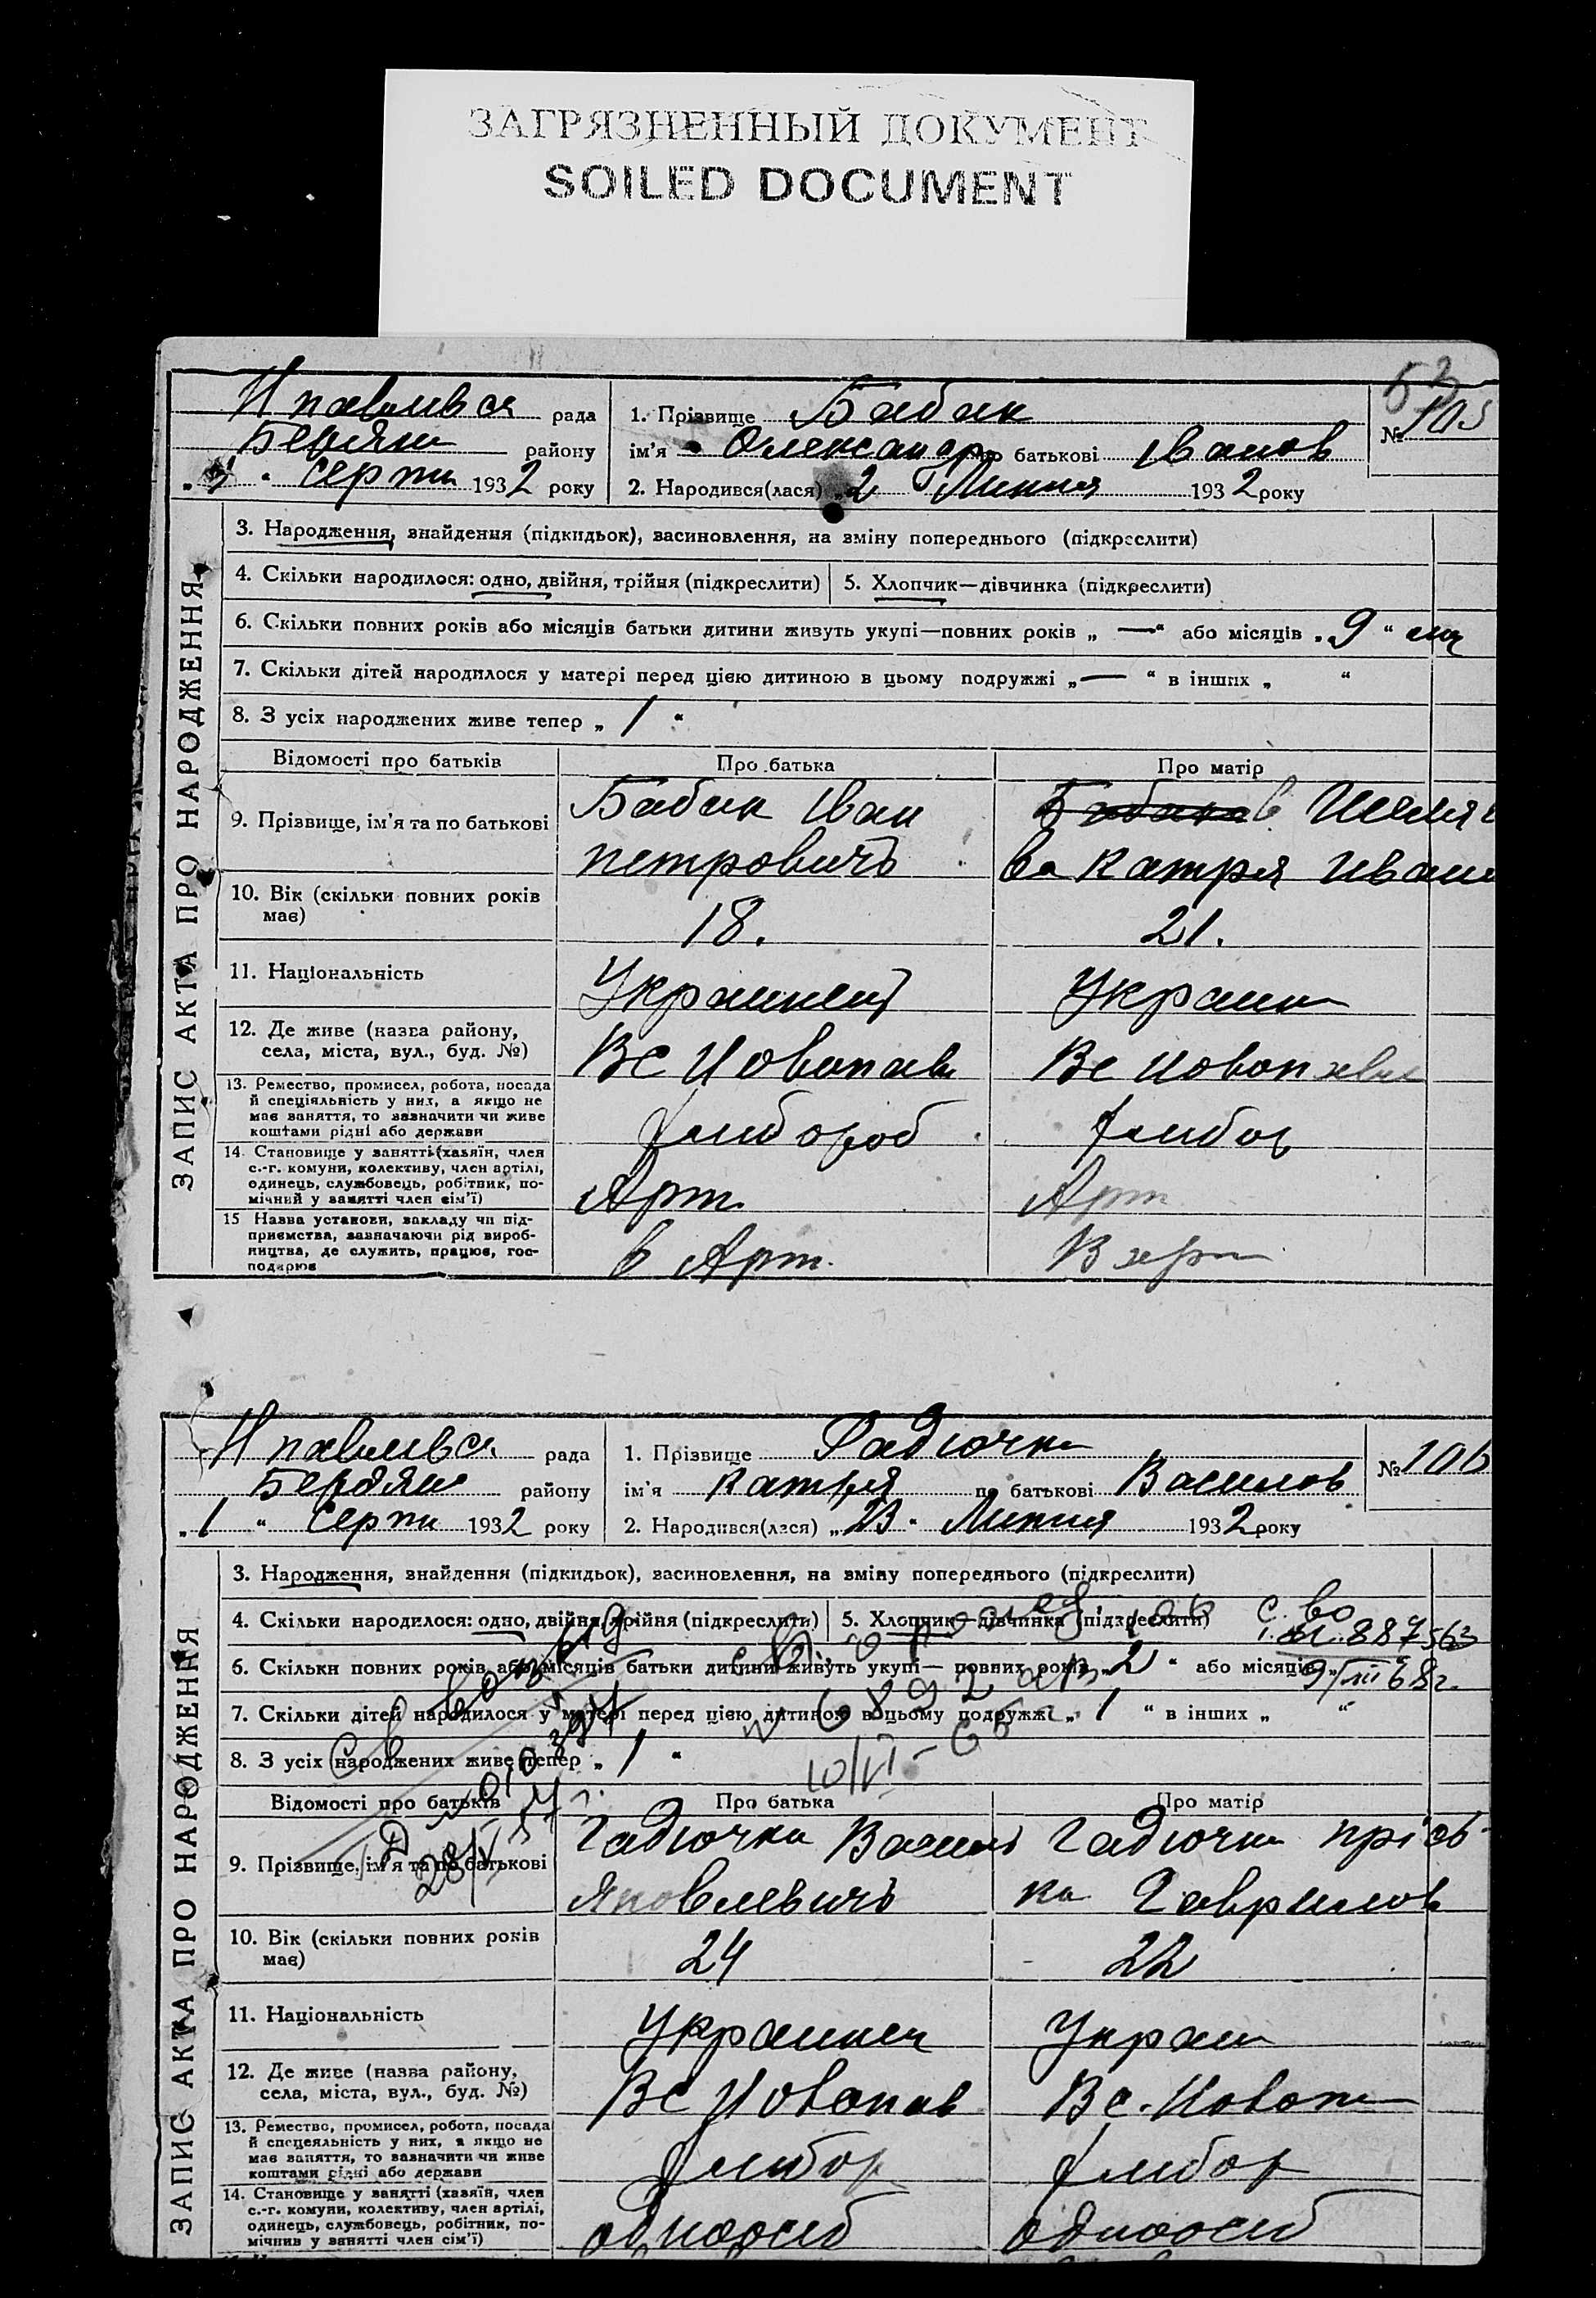 ЗАГРЯЗНЕННЫЙ ДОКУМЕНТ
SOILED DOCUMENT
53
Нпавлився рада
1. Прізвище Бабак
№ 105
Бердян району
ім'я Олександр по батькові Іванов
серпн 1932 року
2. Народився(лася) „2 Липня 1932 року
ЗАПИС АКТА ПРО НАРОДЖЕННЯ
3. Народження, знайдення (підкидьок), васиновлення, на зміну попереднього (підкреслити)
4. Скільки народилося: одно, двійня, трійня (підкреслити)
5. Хлопчик—дівчинка (підкреслити)
6. Скільки повних років або місяців батьки дитини живуть укупі—повних років „ — “ або місяців „ 9 “
7. Скільки дітей народилося у матері перед цією дитиною в цьому подружжі „ — “ в інших „ “
8. З усіх народжених живе тепер „ 1 “
Відомості про батьків
Про батька
Про матір
9. Прізвище, ім'я та по батькові
Бабак Іван
петровичъ
ва Катря Иван
10. Вік (скільки повних років
має)
18.
21.
11. Національність
Украинец
Украин
12. Де живе (назва району,
села, міста, вул., буд. №)
Вс Новопав
Вс Новопавл
13. Ремество, промисел, робота, посада
й спеціяльність у них, а якщо не
має заняття, то зазначити чи живе
коштами рідні або держави
хлибороб
хлибор
14. Становище у занятті (хазяїн, член
с.-г. комуни, колективу, член артілі,
одинець, службовець, робітник, по-
мічний у занятті член сім'ї)
Арт.
Арт
15 Назва установи, закладу чи під-
приємства, зазначаючи рід вироб-
ництва, де служить, працює, гос-
подарює
в Арт.
В арт
Нпавлився рада
1. Прізвище Гадючка
№ 106
Бердян району
ім'я Катря по батькові Василов
„1 “ серпн 1932 року
2. Народився(лася) „23 “ Липня 1932 року
ЗАПИС АКТА ПРО НАРОДЖЕННЯ
3. Народження, знайдення (підкидьок), васиновлення, на зміну попереднього (підкреслити)
4. Скільки народилося: одно, двійня, трійня (підкреслити)
5. Хлопчик—дівчинка (підкреслити)
с. во
887563
6. Скільки повних років або місяців батьки дитини живуть укупі— повних років „ 2 “ або місяців
9/VII 68г.
7. Скільки дітей народилося у матері перед цією дитиною в цьому подружжі „ 1 “ в інших „ “
8. З усіх народжених живе тепер „ 1 “
10/VI-66
28/V 57 г.
Відомості про батьків
Про батька
Про матір
9. Прізвище, ім'я та по батькові
Гадючка Васил
Гадючка прісь
Яковлевичъ
ка Гаврилов
10. Вік (скільки повних років
має)
24
22
11. Національність
Украинец
Украин
12. Де живе (назва району,
села, міста, вул., буд. №)
Вс Новопав
Вс. Новоп
13. Ремество, промисел, робота, посада
й спецеяльність у них, а якщо не
має заняття, то зазначити чи живе
коштами рідні або держави
хлибор
хлибор
14. Становище у занятті (хазяїн, член
с.-г. комуни, колективу, член артілі,
одинець, службовець, робітник, по-
мічник у занятті член сім'ї)
одноосіб
одноосіб